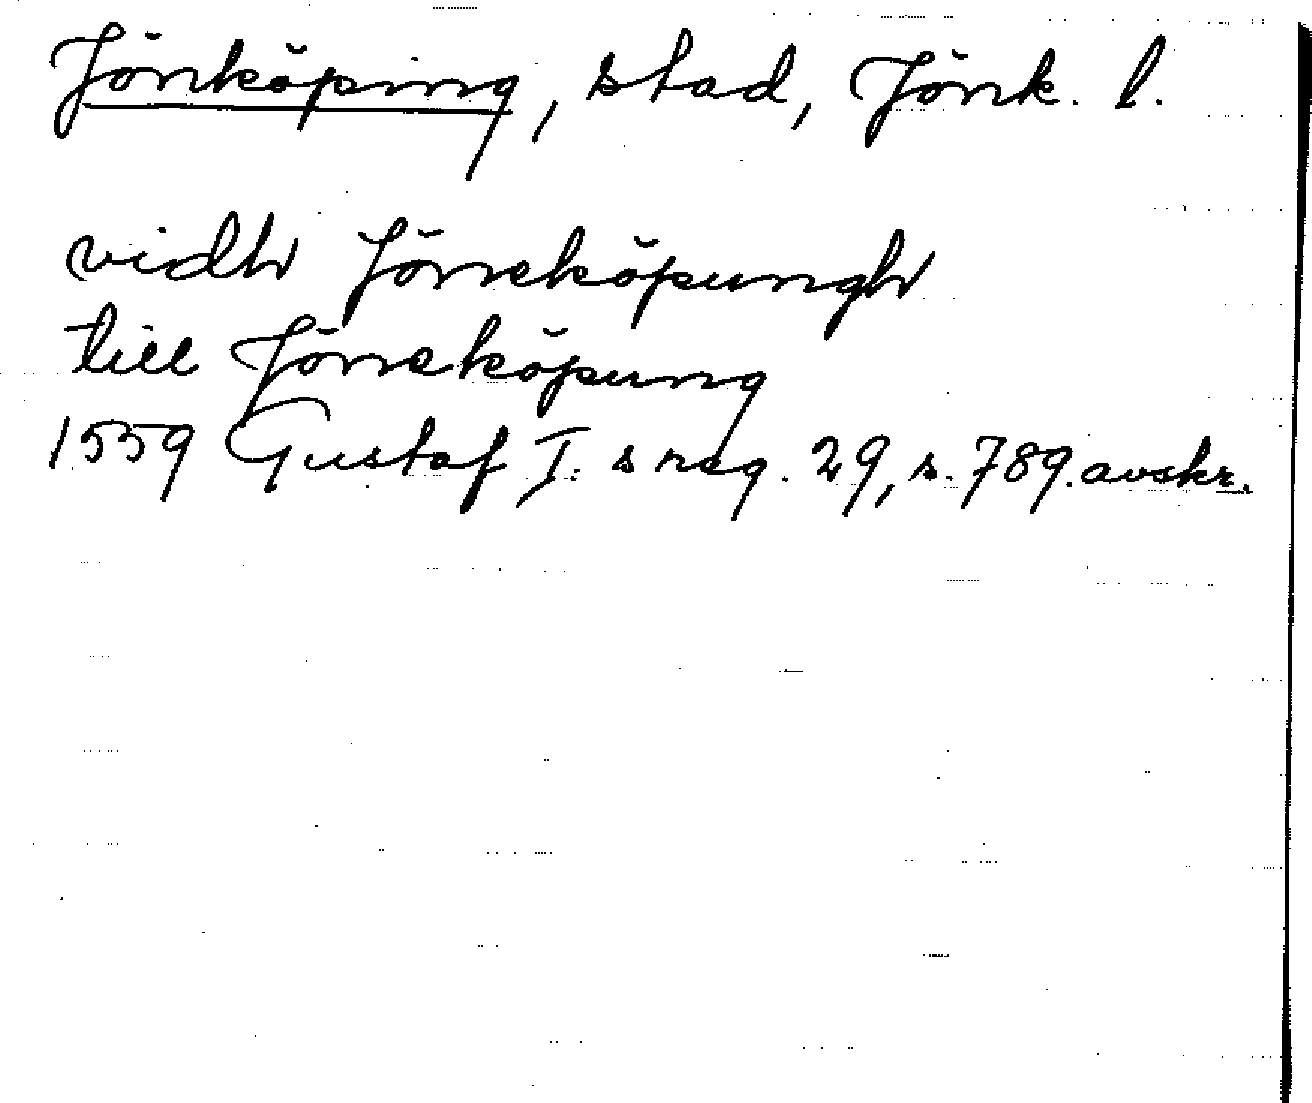 Jönköping, stad, Jönk. l.
vidh Jöneköpungh
till Jöneköpung
1559 Gustaf I:s reg. 29, s. 789. avskr.